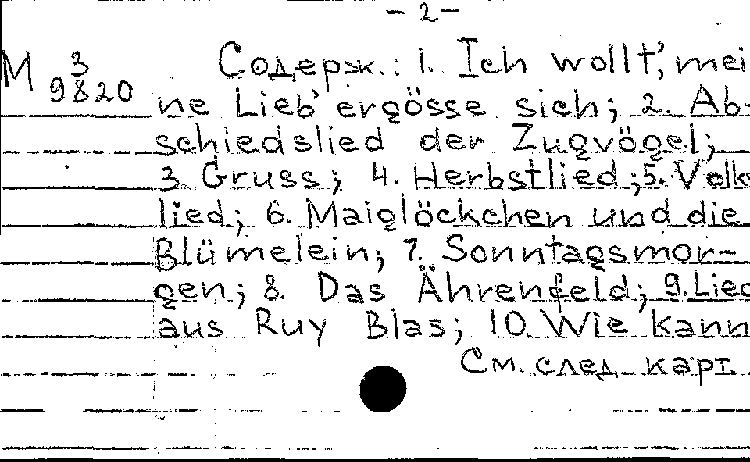 - 2 -
М 3/9820 Содерж.: 1. Ich wollt', mei
ne Lieb' ergösse sich; 2. Ab-
schiedslied der Zugvögel;
3. Gruss; 4. Herbstlied; 5. Volks
lied; 6. Maiglöckchen und die
Blümelein; 7. Sonntagsmor-
gen; 8. Das Ährenfeld; 9. Lied
aus Ruy Blas; 10. Wie kann
См. след. карт.